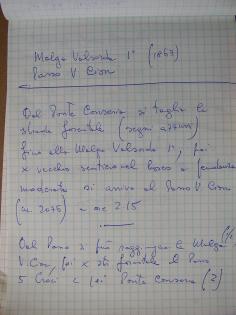 Malga Valsorda 1° (1867)
Passo V Cion
Dal Ponte Conseria si taglia la
strada forestale (segni azzurri)
fino alla Malga Valsorda 1°, poi
x vecchio sentiero nel bosco a pendenza
moderata si arriva al Passo V Cion
(m. 2075) - ore 2.15
Dal Passo si può raggiungere la Malga
V. Cion, poi x str forestale il Passo
5 Croci e poi Ponte Conseria (2)